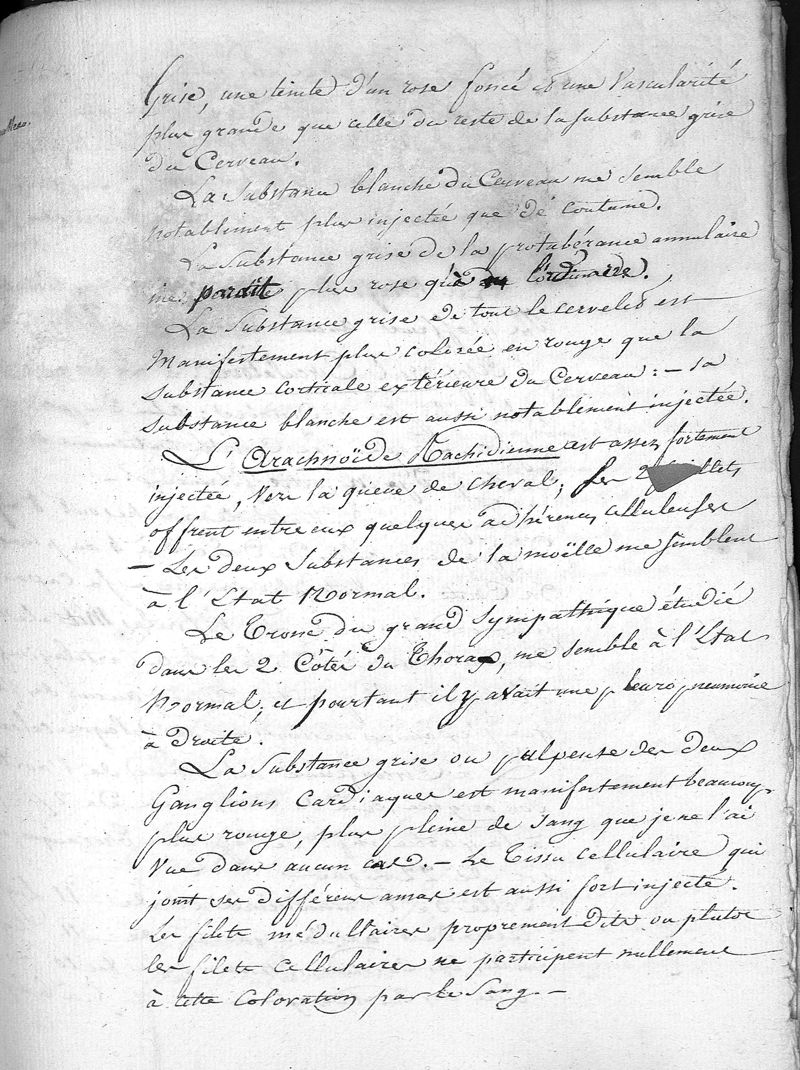 Grise, une teinte d'un rose foncé & une vascularité
plus grande que celle du reste de la substance grise
du Cerveau.
La Substance blanche du Cerveau me semble
notablement plus injectée que de coutume.
La Substance grise de la protubérance annulaire
me paroît plus rose qu'à l'ordinaire.
La Substance grise de tout le cervelet est
Manifestement plus colorée en rouge que la
Substance corticale extérieure du Cerveau : – sa
Substance blanche est aussi notablement injectée.
L'Arachnoïde Rachidienne est assez fortement
injectée, Vers la queue de cheval; Les 2 feuillets
offrent entre eux quelques adhérences celluleuses
– Les deux Substances de la moëlle me semblent
à l'Etat Normal.
Le Tronc du grand Sympathique étudié
dans les 2 Côtés du Thorax, me semble à l'Etat
Normal; et pourtant il y avait une pleuro pneumonie
à droite.
La Substance grise ou pulpeuse des deux
Ganglions Cardiaques est manifestement beaucoup
plus rouge, plus pleine de Sang que je ne l'ai
Vue dans aucun cas. – Le Tissu cellulaire qui
joint ses différens amas est aussi fort injecté.
Les filets médullaires proprement dits ou plutot
les filets cellulaires ne participent nullement
à cette Coloration par le Sang. –